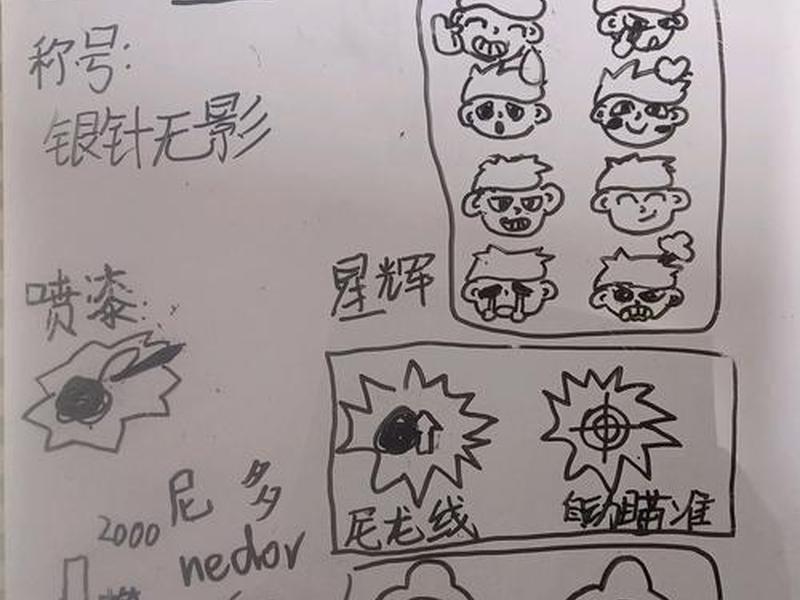 称号:
银针无影
喷漆:
星辉
尼龙线
自动瞄准
尼多
2000
nedor